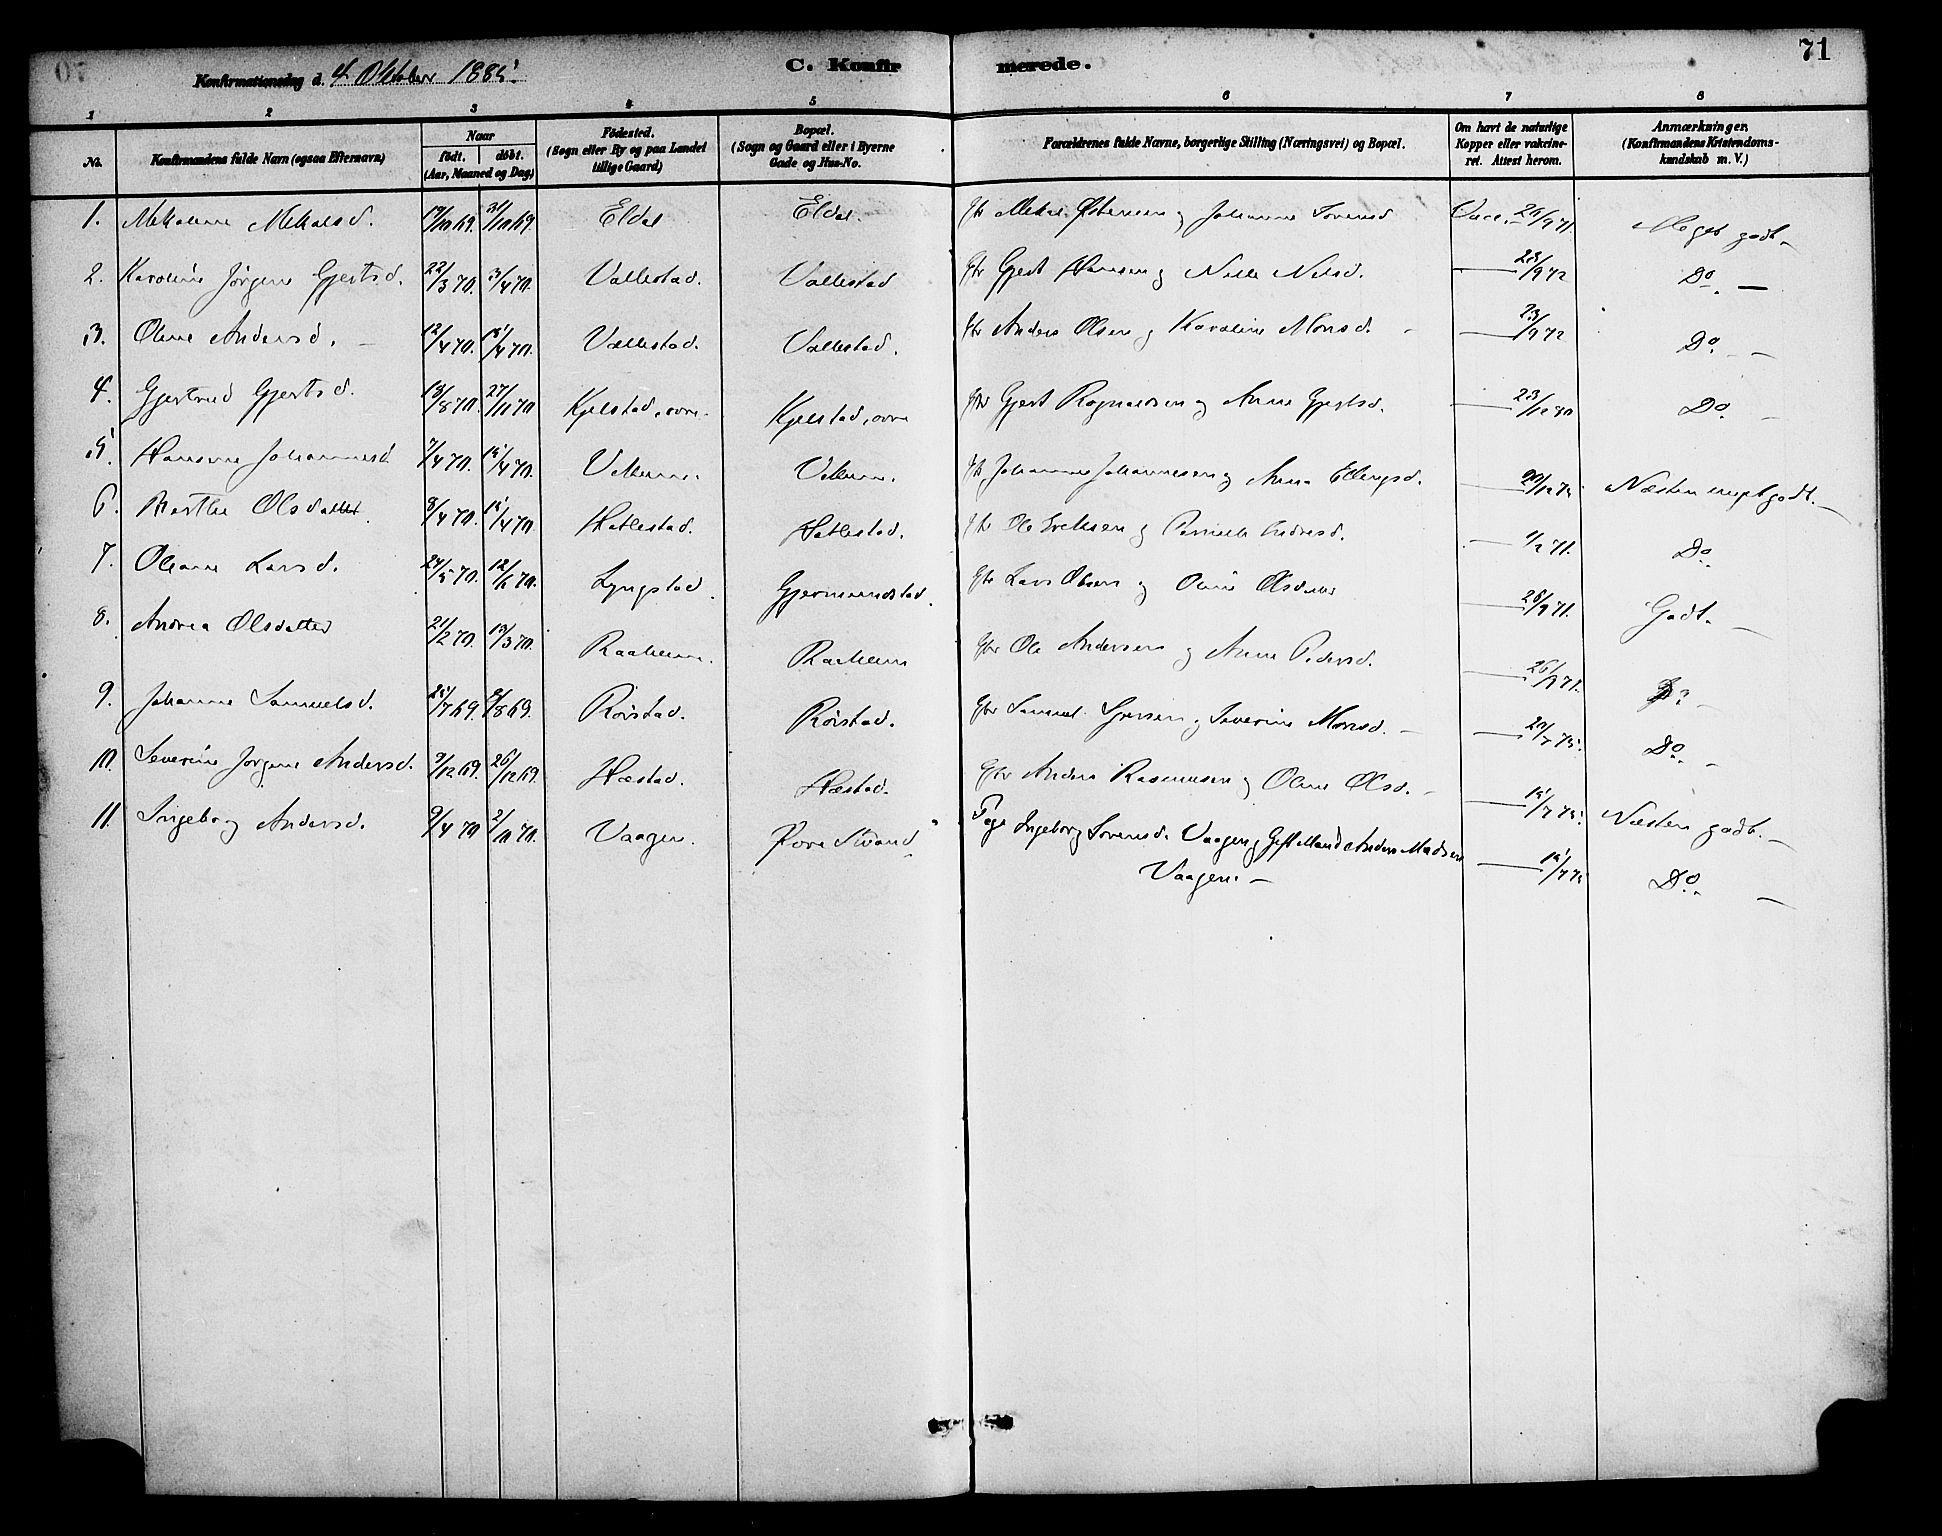 71
Konfirmationsdag d. 4 Oktober 1885.
C. Konfirmerede.
1 2 3 4 5 6 7 8
No. Konfirmandens fulde Navn (ogsaa Efternavn) Naar födt. döbt. (Aar, Maaned og Dag) Födested. (Sogn eller By og paa Landet tillige Gaard) Bopæl. (Sogn og Gaard eller i Byerne Gade og Hus-No. Forældrenes fulde Navne, borgerlige Stilling (Næringsvei) og Bopæl. Om havt de naturlige Kopper eller vakcineret. Attest herom. Anmærkninger. (Konfirmandens Kristendomskundskab m. V.)
1. Mekaline Mekalsd. 19/10 69. 31/10 69. Eldal Eldal. Mekal Østensen og Johanne Sorensd Vacc. 26/9 71. Meget godt.
2. Karoline Jørgine Gjertsd. 22/3 70. 3/4 70. Vallestad. Vallestad Gjert Hansen og Nille Nilsd. 23/9 72 Do. —
3. Oline Andersd. 12/4 70. 18/4 70. Vallestad. Vallestad. Anders Olsen og Karoline Monsd. 23/9 72 Do. —
4. Gjertrud Gjertsd. 13/8 70. 27/11 70 Kjelstad, øvre. Kjelstad, øvre Gjert Ragnaldsen og Anne Gjertsd. 23/12 70 Do. —
5. Hansine Johannesd. 7/4 70. 15/4 70. Vellum. Vellum. Johannes Johannessen og Anna Ellingsd. Næsten meget godt. —
6. Marthe Olsdatter. 8/4 70. 15/4 70. Hatlestad. Hatlestad. Ole Eriksen og Pernille Andersd. 1/2 71. Do.
7. Oleane Larsd. 24/5 70. 12/6 70. Lyngstad. Gjermundstad. Lars Olsen og Oline Olsdatter 26/9 71. Godt. —
8. Andrea Olsdatter 21/2 70. 13/3 70. Raaheim. Raaheim Ole Andersen og Anne Pedersd. 26/9 71. Do —
9. Johanne Samuelsd. 25/7 69. 8/8 69. Rørstad. Rørstad. Samuel og Severine Monsd. — 20/7 75. Do. —
10. Severine Jørgine Andersd. 9/12 69. 26/12 69. Hæstad. Hæstad. Anders Rasmussen og Oline Olsd. — 15/7 75. Næsten godt. —
11. Ingeborg Andersd. 9/4 70 2/10 70. Vaagen. Øvre Pige Ingeborg Sorensd. Vaagen og Gift Mand Anders Madsen Vaagen. — 15/7 75 Do. —